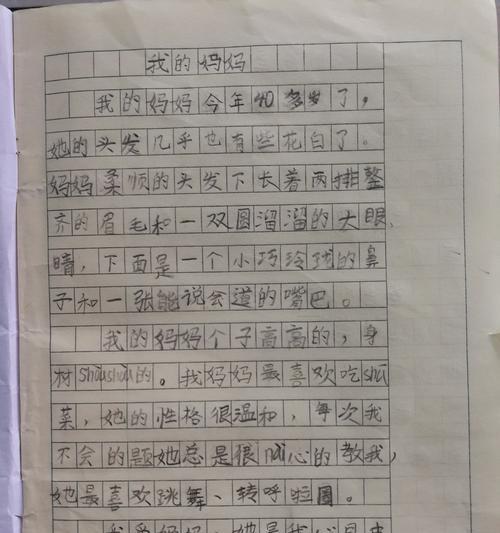 我的妈妈
我的妈妈今年40多岁了,
她的头发几乎也有些花白了。
妈妈柔顺的头发下长着两排整
齐的眉毛和一双圆溜溜的大眼
睛,下面是一个小巧玲珑的鼻
子和一张能说会道的嘴巴。
我的妈妈个子高高的,身
材shòushòu的。我妈妈最喜欢吃shū
菜,她的性格很温和,每次我
不会的题她总是很nài心的教我,
她最喜欢跳舞、转呼啦圈。
我爱妈妈,她是我心目中